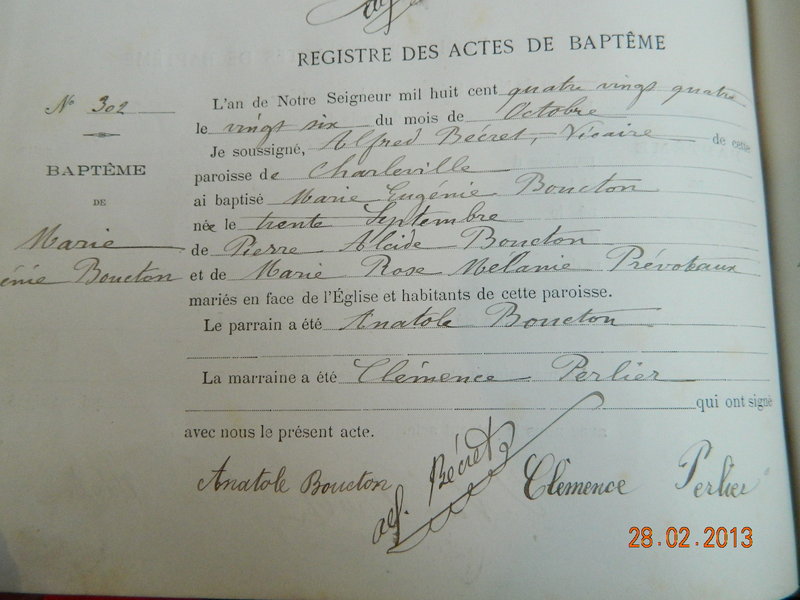 REGISTRE DES ACTES DE BAPTÊME
N° 302
BAPTÊME
DE
Marie
énie Boucton
L'an de Notre Seigneur mil huit cent quatre vings quatre
le vings six du mois de Octobre
Je soussigné, Alfred Bécret, Vicaire de cette
paroisse de Charleville
ai baptisé Marie Eugénie Boucton
née le trente Septembre
de Pierre Alcide Boucton
et de Marie Rose Mélanie Prévoteaux
mariés en face de l'Église et habitants de cette paroisse.
Le parrain a été Anatole Boucton
La marraine a été Clémence Perlier
qui ont signé
avec nous le présent acte.
Anatole Boucton alf. Bécret Clémence Perlier
28.02.2013